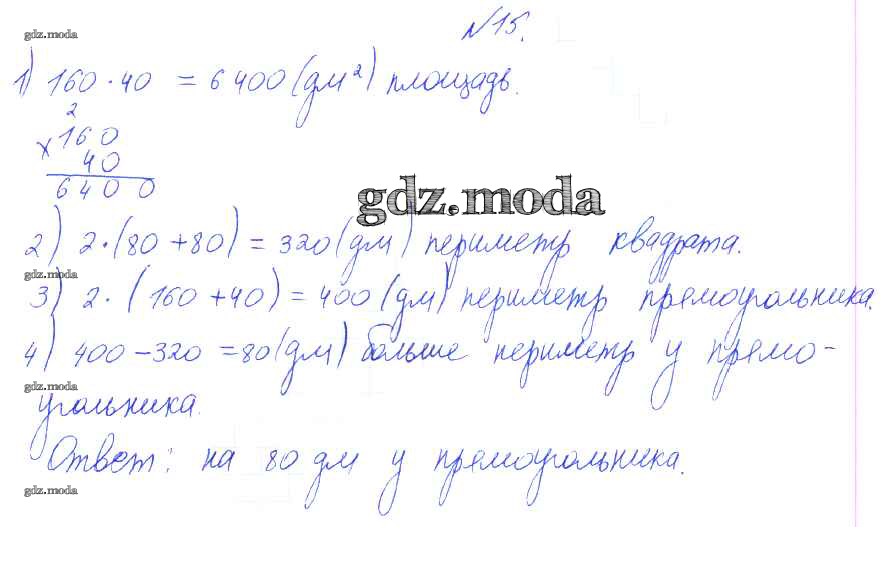 gdz.moda
№15.
1) 160 · 40 = 6400 (дм²) площадь.
2
× 160
40
6400
gdz.moda
2) 2·(80+80) = 320 (дм) периметр квадрата.
gdz.moda
3) 2·(160+40) = 400 (дм) периметр прямоугольника.
4) 400 – 320 = 80 (дм) больше периметр у прямо-
gdz.moda
угольника.
Ответ: на 80 дм у прямоугольника.
gdz.moda